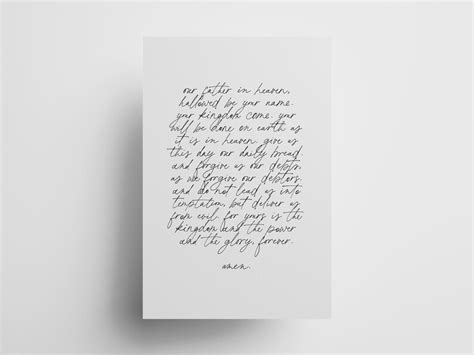 our father in heaven,
hallowed be your name.
your kingdom come. your
will be done on earth as
it is in heaven. give us
this day our daily bread
and forgive us our debts,
as we forgive our debtors.
and do not lead us into
temptation, but deliver us
from evil. for yours is the
kingdom and the power
and the glory, forever.
amen.